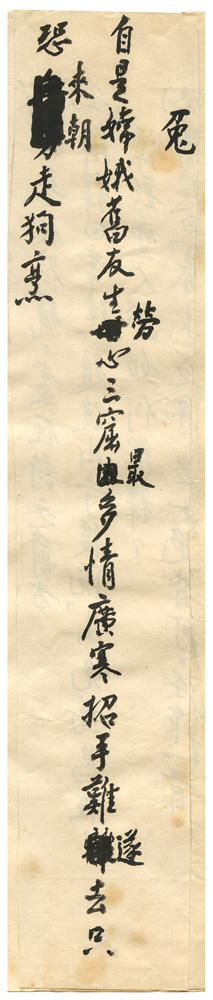 兔
自是嫦娥舊友生勞心三窟最多情廣寒招手難遂去只
恐來朝走狗烹